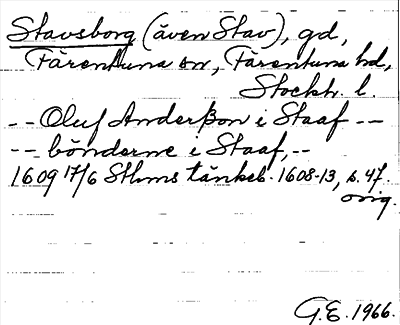 Stavsborg (även Stav), gd,
Färentuna sn, Färentuna hd,
Stockh. l.
-- Oluf Anderßon i Staaf --
-- bönderne i Staaf, --
1609 17/6 Sthms tänkeb. 1608-13, s. 47.
orig.
G.E. 1966.